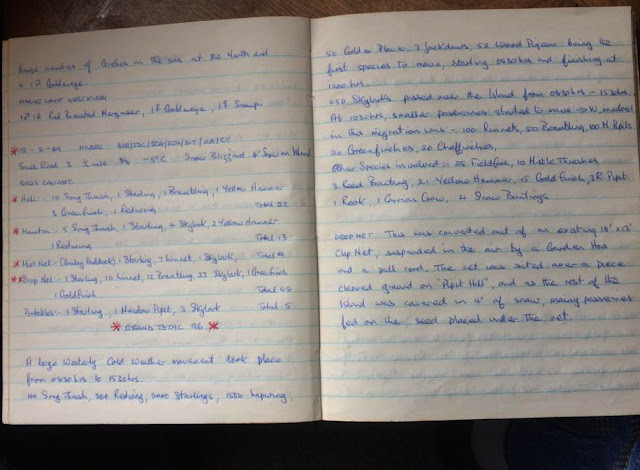 Large number of Grebes in the sea at the North end
+ 1♀ Goldeneye
1♂ 1♀ Red Breasted Merganser, 1♀ Goldeneye, 1♀ Scaup
15-2-69
3 -5°C Snow Blizzard 4" Snow on Island
BIRDS CAUGHT
Heli:- 10 Song Thrush, 1 Starling, 1 Brambling, 1 Yellow Hammer
3 Greenfinch, 1 Redwing Total 22
Newton:- 5 Song Thrush, 1 Starling, 4 Skylark, 2 Yellow Hammer
1 Redwing Total 13
Mist Net:- (Bailey Paddock) 1 Starling, 7 Linnet, 1 Skylark, Total 9
Drop Net:- 1 Starling, 10 Linnet, 12 Brambling, 23 Skylark, 1 Greenfinch
1 Goldfinch Total 48
Portables:- 1 Starling, 1 Meadow Pipit, 3 Skylark Total 5
GRAND TOTAL 96
A large Westerly Cold Weather movement took place
from 0830hrs to 1530hrs.
100 Song Thrush, 300 Redwing, 3000 Starlings, 1550 Lapwing,
52 Golden Plover, 7 Jackdaws, 52 Wood Pigeon being the
first species to move, starting 0830hrs and finishing at
1200 hrs.
650 Skylarks passed over the Island from 0830hrs - 1530hrs.
At 1030hrs, smaller passerines started to move → W, involved
in this migration were - 100 Linnets, 50 Brambling, 100 M. Pipits
20 Greenfinches, 20 Chaffinches,
Other Species involved:- 25 Fieldfare, 10 Mistle Thrushes,
3 Reed Bunting, 21 Yellow Hammer, 15 Gold Finch, 2 R. Pipit
1 Rook, 1 Carrion Crow, 4 Snow Buntings
DROP NET: This was converted out of an existing 18' x 12'
Clap Net, suspended in the air by a Garden Hoe
and a pull cord. The net was sited over a piece
cleared ground on "Pipit Hill", and as the rest of the
Island was covered in 4" of snow, many passerines
fed on the seed placed under the net.